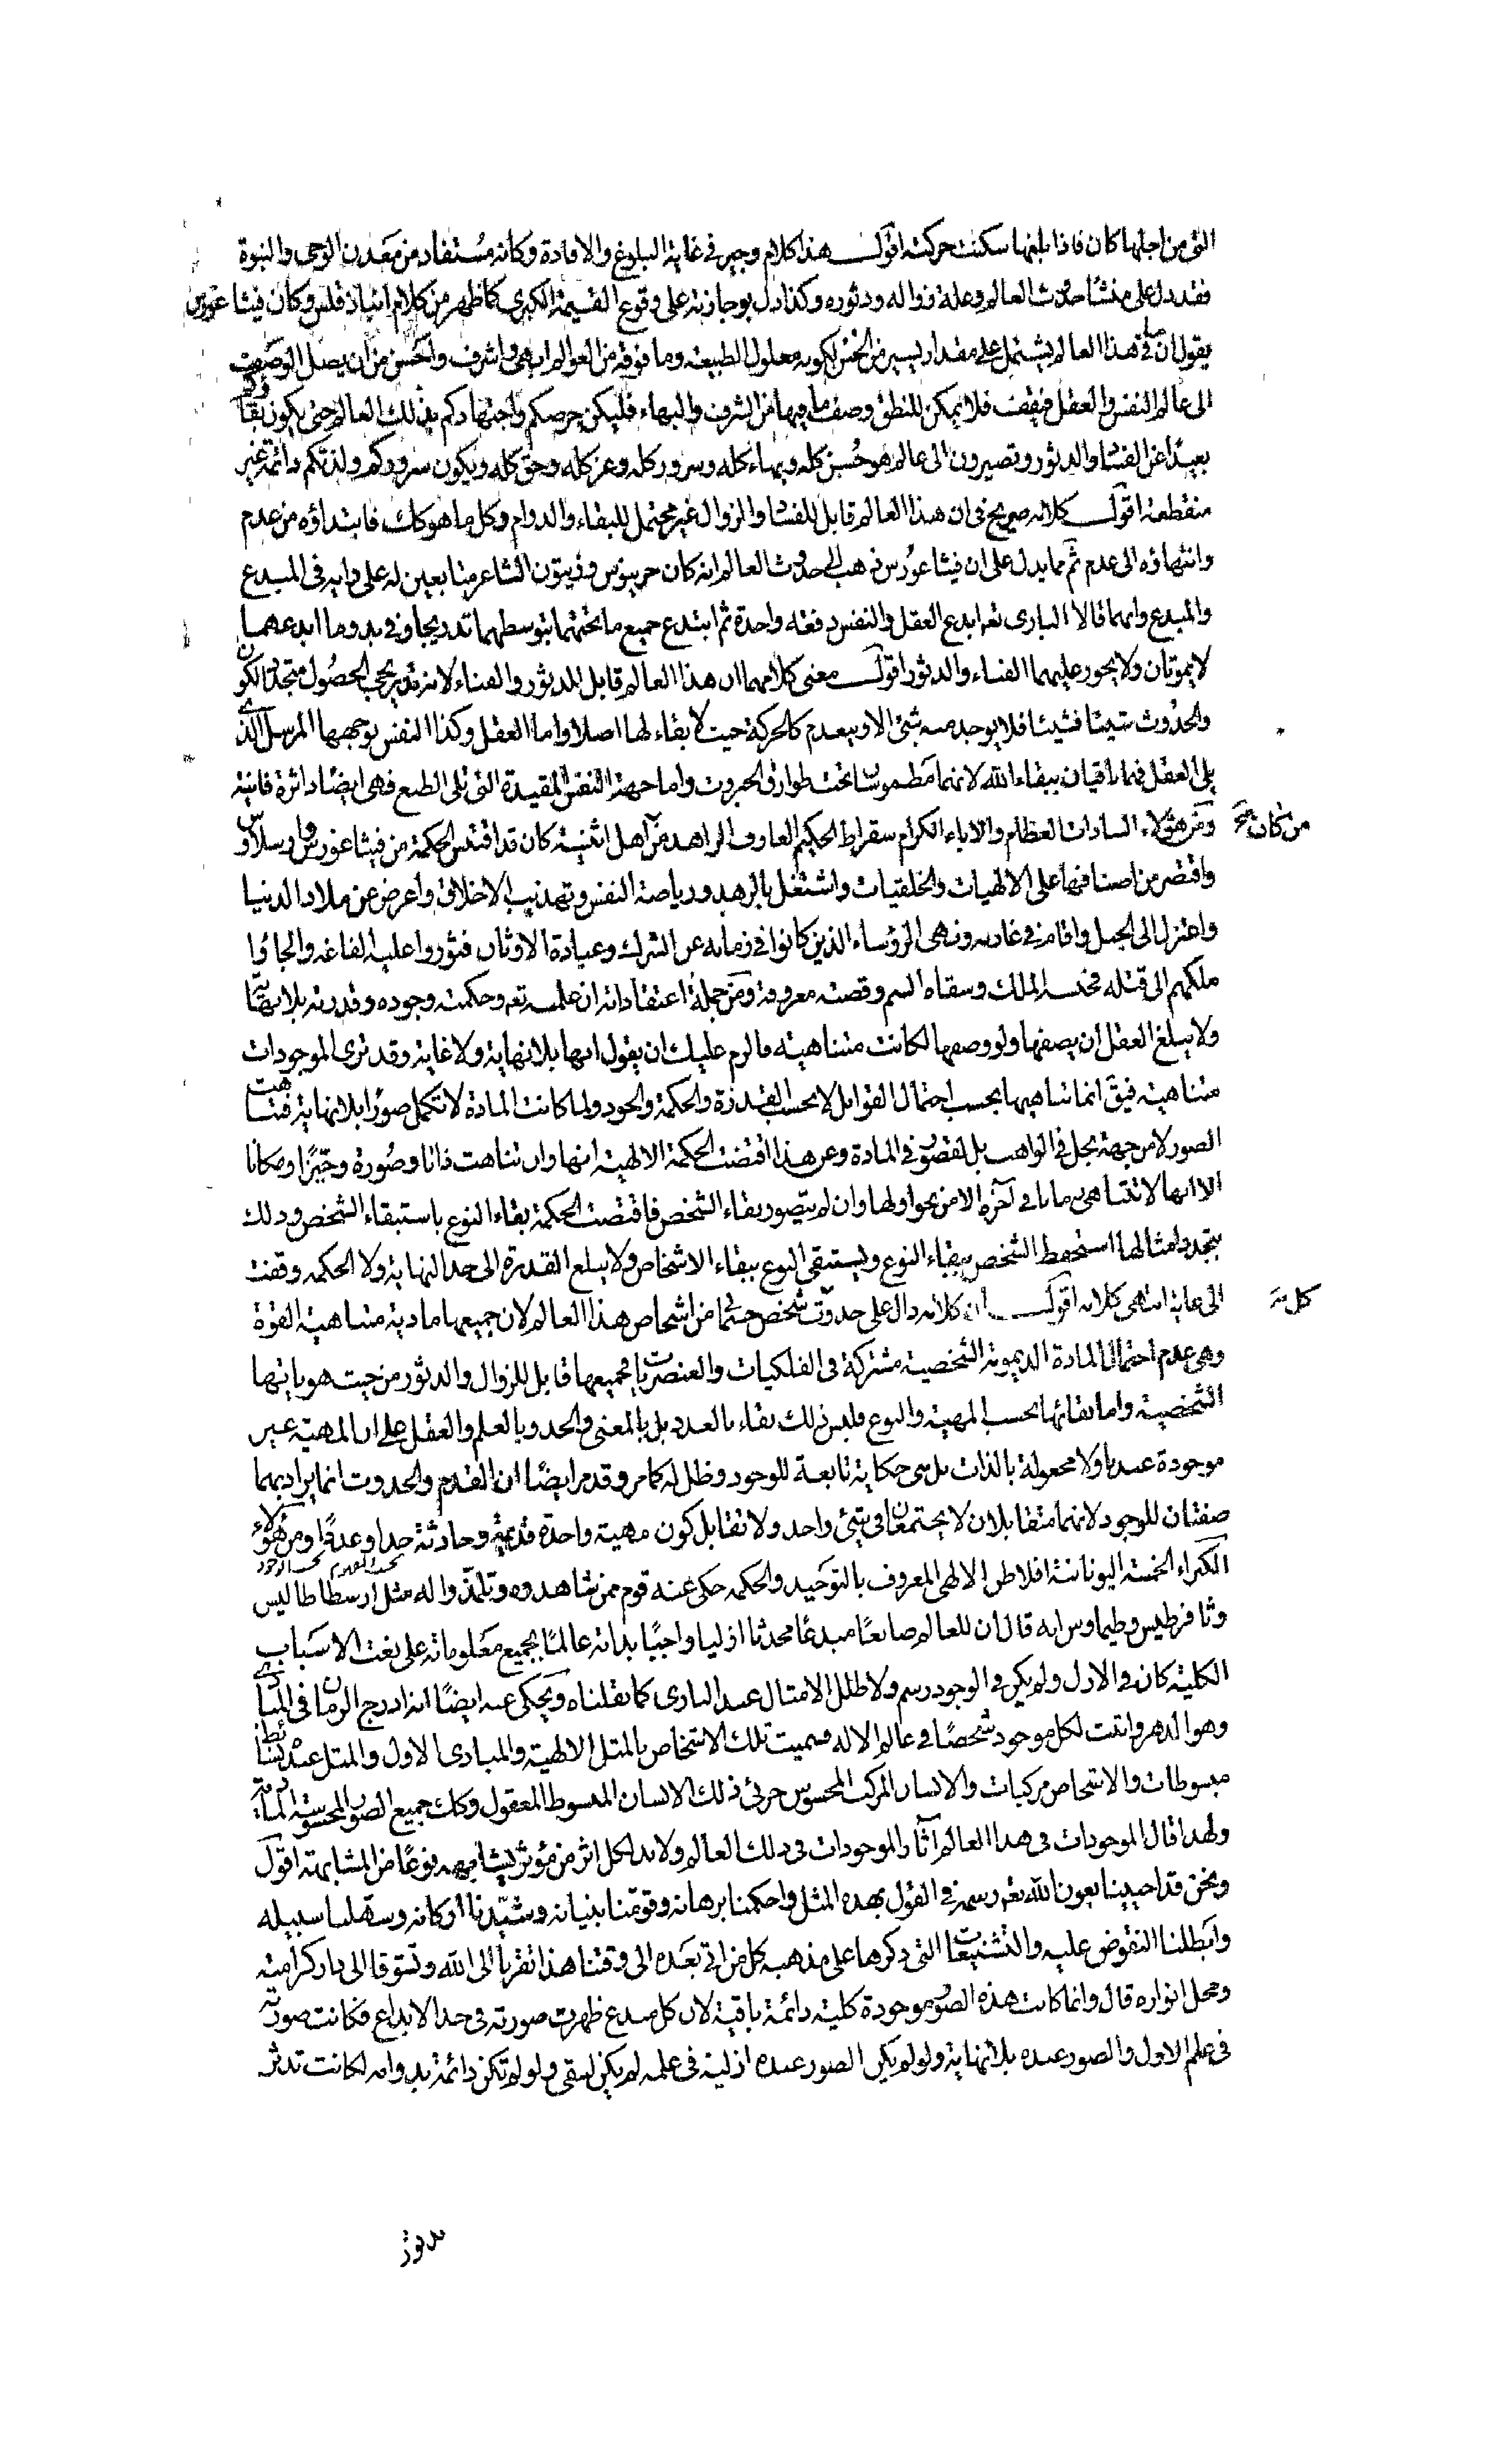 التى من اجلها كان فاذا بلغها سكنت حركته اقول هذا كلام وجيز فى غاية البلوغ والافادة وكانه مستفاد من معدن الوحى والنبوة
فقد دل على منشا حدوث العالم وعلة زواله ودثوره وكذا دل بوجازته على وقوع القيمة الكبرى كما ظهر من كلام انباذقلس وكان فيثاغورس
يقول ان ما فى هذا العالم يشتمل على مقدار يسير من الحسن لكونه معلول الطبيعة وما فوقه من العوالم ابهى واشرف واحسن من ان يصل الوصف
الى عالم النفس والعقل فيقف فلا يمكن للنطق وصف ما فيها من الشرف والبهاء فليكن حرصكم واجتهادكم بذلك العالم حتى يكون بقاؤكم
بعيدا عن الفساد والدثور وتصيرون الى عالم هو حسن كله وبهاء كله وسرور كله وعز كله وحق كله ويكون سروركم ولذتكم دائمة غير
منقطعة اقول كلامه صريح فى ان هذا العالم قابل للفساد والزوال غير محتمل للبقاء والدوام وكل ما هو كك فابتداؤه من عدم
وانتهاؤه الى عدم ثم مما يدل على ان فيثاغورس ذهب الى حدوث العالم انه كان خرينوس وزيتون الشاعر متابعين له على رايه فى المبدع
والمبدع وانهما قالا البارى تعم ابدع العقل والنفس دفعة واحدة ثم ابتدع جميع ما تحتهما بتوسطهما تدريجا وفى بدو ما ابدعهما
لا يموتان ولا يجوز عليهما الفناء والدثور اقول معنى كلامهما ان هذا العالم قابل للدثور والفناء لانه تدريجى الحصول متجدد الكون
والحدوث شيئا فشيئا فلا يوجد منه شئ الا وينعدم كالحركة حيث لا بقاء لها اصلا واما العقل وكذا النفس بوجهها المرسل الذى
يلى العقل فهما باقيان ببقاء الله لانهما مطموسان تحت طوارق الجبروت واما جهة النفس المقيدة التى تلى الطبع فهى ايضا داثرة فانية
ومن هؤلاء السادات العظام والاباء الكرام سقراط الحكيم العارف الزاهد من اهل اثينية كان قد اقتبس الحكمة من فيثاغورس وارسلاوس
من كان
واقتصر من اصنافها على الالهيات والخلقيات واشتغل بالزهد ورياضة النفس وتهذيب الاخلاق واعرض عن ملاذ الدنيا
واعتزل الى الجبل واقام فى غار به ونهى الرؤساء الذين كانوا فى زمانه عن الشرك وعبادة الاوثان فثوروا عليه الغاغه والجاؤا
ملكهم الى قتله فحبسه الملك وسقاه السم وقصته معروفة ومن جملة اعتقاداته ان علمه تعم وحكمته وجوده وقدرته بلا نهاية
ولا يبلغ العقل ان يصفها ولو وصفها لكانت متناهية فالزم عليك ان يقول انها بلا نهاية ولا غاية وقد ترى الموجودات
متناهية فيق انما تناهيها بحسب احتمال القوابل لا بحسب القدرة والحكمة والجود ولما كانت المادة لا تحتمل صورا بلا نهاية فتناهت
الصور لا من جهة بخل فى الواهب بل لقصور فى المادة وعن هذا اقتضت الحكمة الالهية انها وان تناهت ذاتا وصورة وحيزا ومكانا
الا انها لا تتناهى زمانا فى آخرها الا من نحو اولها وان لم يتصور بقاء الشخص فاقتضت الحكمة بقاء النوع باستبقاء الشخص وذلك
بتجدد امثالها استحفظ الشخص ببقاء النوع ويستبقى النوع ببقاء الاشخاص ولا يبلغ القدرة الى حد النهاية ولا الحكمة وقفت
الى غاية انتهى كلامه اقول كلامه دال على حدوث شخص من اشخاص هذا العالم لان جميعها مادية متناهية القوة
كل
وهى عدم احتمال المادة الديمومة الشخصية مشتركة فى الفلكيات والعنصريات فجميعها قابل للزوال والدثور من حيث هوياتها
الشخصية واما بقائها بحسب المهية والنوع فليس ذلك بقاء بالعدد بل بالمعنى والحد وبالعلم والعقل على ان المهية غير
موجودة عندنا ولا مجعولة بالذات بل هى حكاية تابعة للوجود وظل له كما مر وقد مر ايضا ان القدم والحدوث انما يراد بهما
صفتان للوجود لانهما متقابلان لا يجتمعان فى شئ واحد ولا تقابل كون مهية واحدة قديمة وحادثة حدا وعددا ومن هؤلاء
الكبراء الخمسة اليونانية افلاطن الالهى المعروف بالتوحيد والحكمة حكى عنه قوم ممن شاهدوه وتلمذوا له مثل ارسطاطاليس
وثافرطيس وطيماوس انه قال ان للعالم صانعا مبدعا محدثا ازليا واجبا بذاته عالما بجميع معلوماته على نعت الاسباب
الكلية كان فى الازل ولم يكن فى الوجود رسم ولا طلل الا مثال عند البارى كما نقلناه ويحكى عنه ايضا انه ادرج الزمان فى المبادى
وهو الدهر واثبت لكل موجود شخصا فى عالم الاله وسميت تلك الاشخاص بالمثل الالهية والمبادى الاول والمثل عنده بسائط
مبسوطات والاشخاص مركبات والانسان المركب المحسوس جزئى ذلك الانسان المبسوط المعقول وكك جميع الصور المحسوسة المادية
ولهذا قال الموجودات فى هذا العالم آثار الموجودات فى ذلك العالم ولا بد لكل اثر من مؤثر يشابهه نوعا من المشابهة اقول
ونحن قد احيينا بعون الله تعم رسمه فى القول بهذه المثل واحكمنا برهانه وقومنا بنيانه وشيدنا اركانه وسهلنا سبيله
وابطلنا النقوض عليه والتشنيعات التى ذكرها على مذهبه كل من اتى بعده الى وقتنا هذا تقربا الى الله وتشوقا الى دار كرامته
ومحل انواره قال وانما كانت هذه الصور موجودة كلية دائمة باقية لان كل مبدع ظهرت صورته فى حد الابداع فكانت صورته
فى علم الاول والصور عنده بلا نهاية ولو لم يكن الصور عنده ازلية فى علمه لم يكن ليبقى ولو لم تكن دائمة بدوامه لكانت تدثر